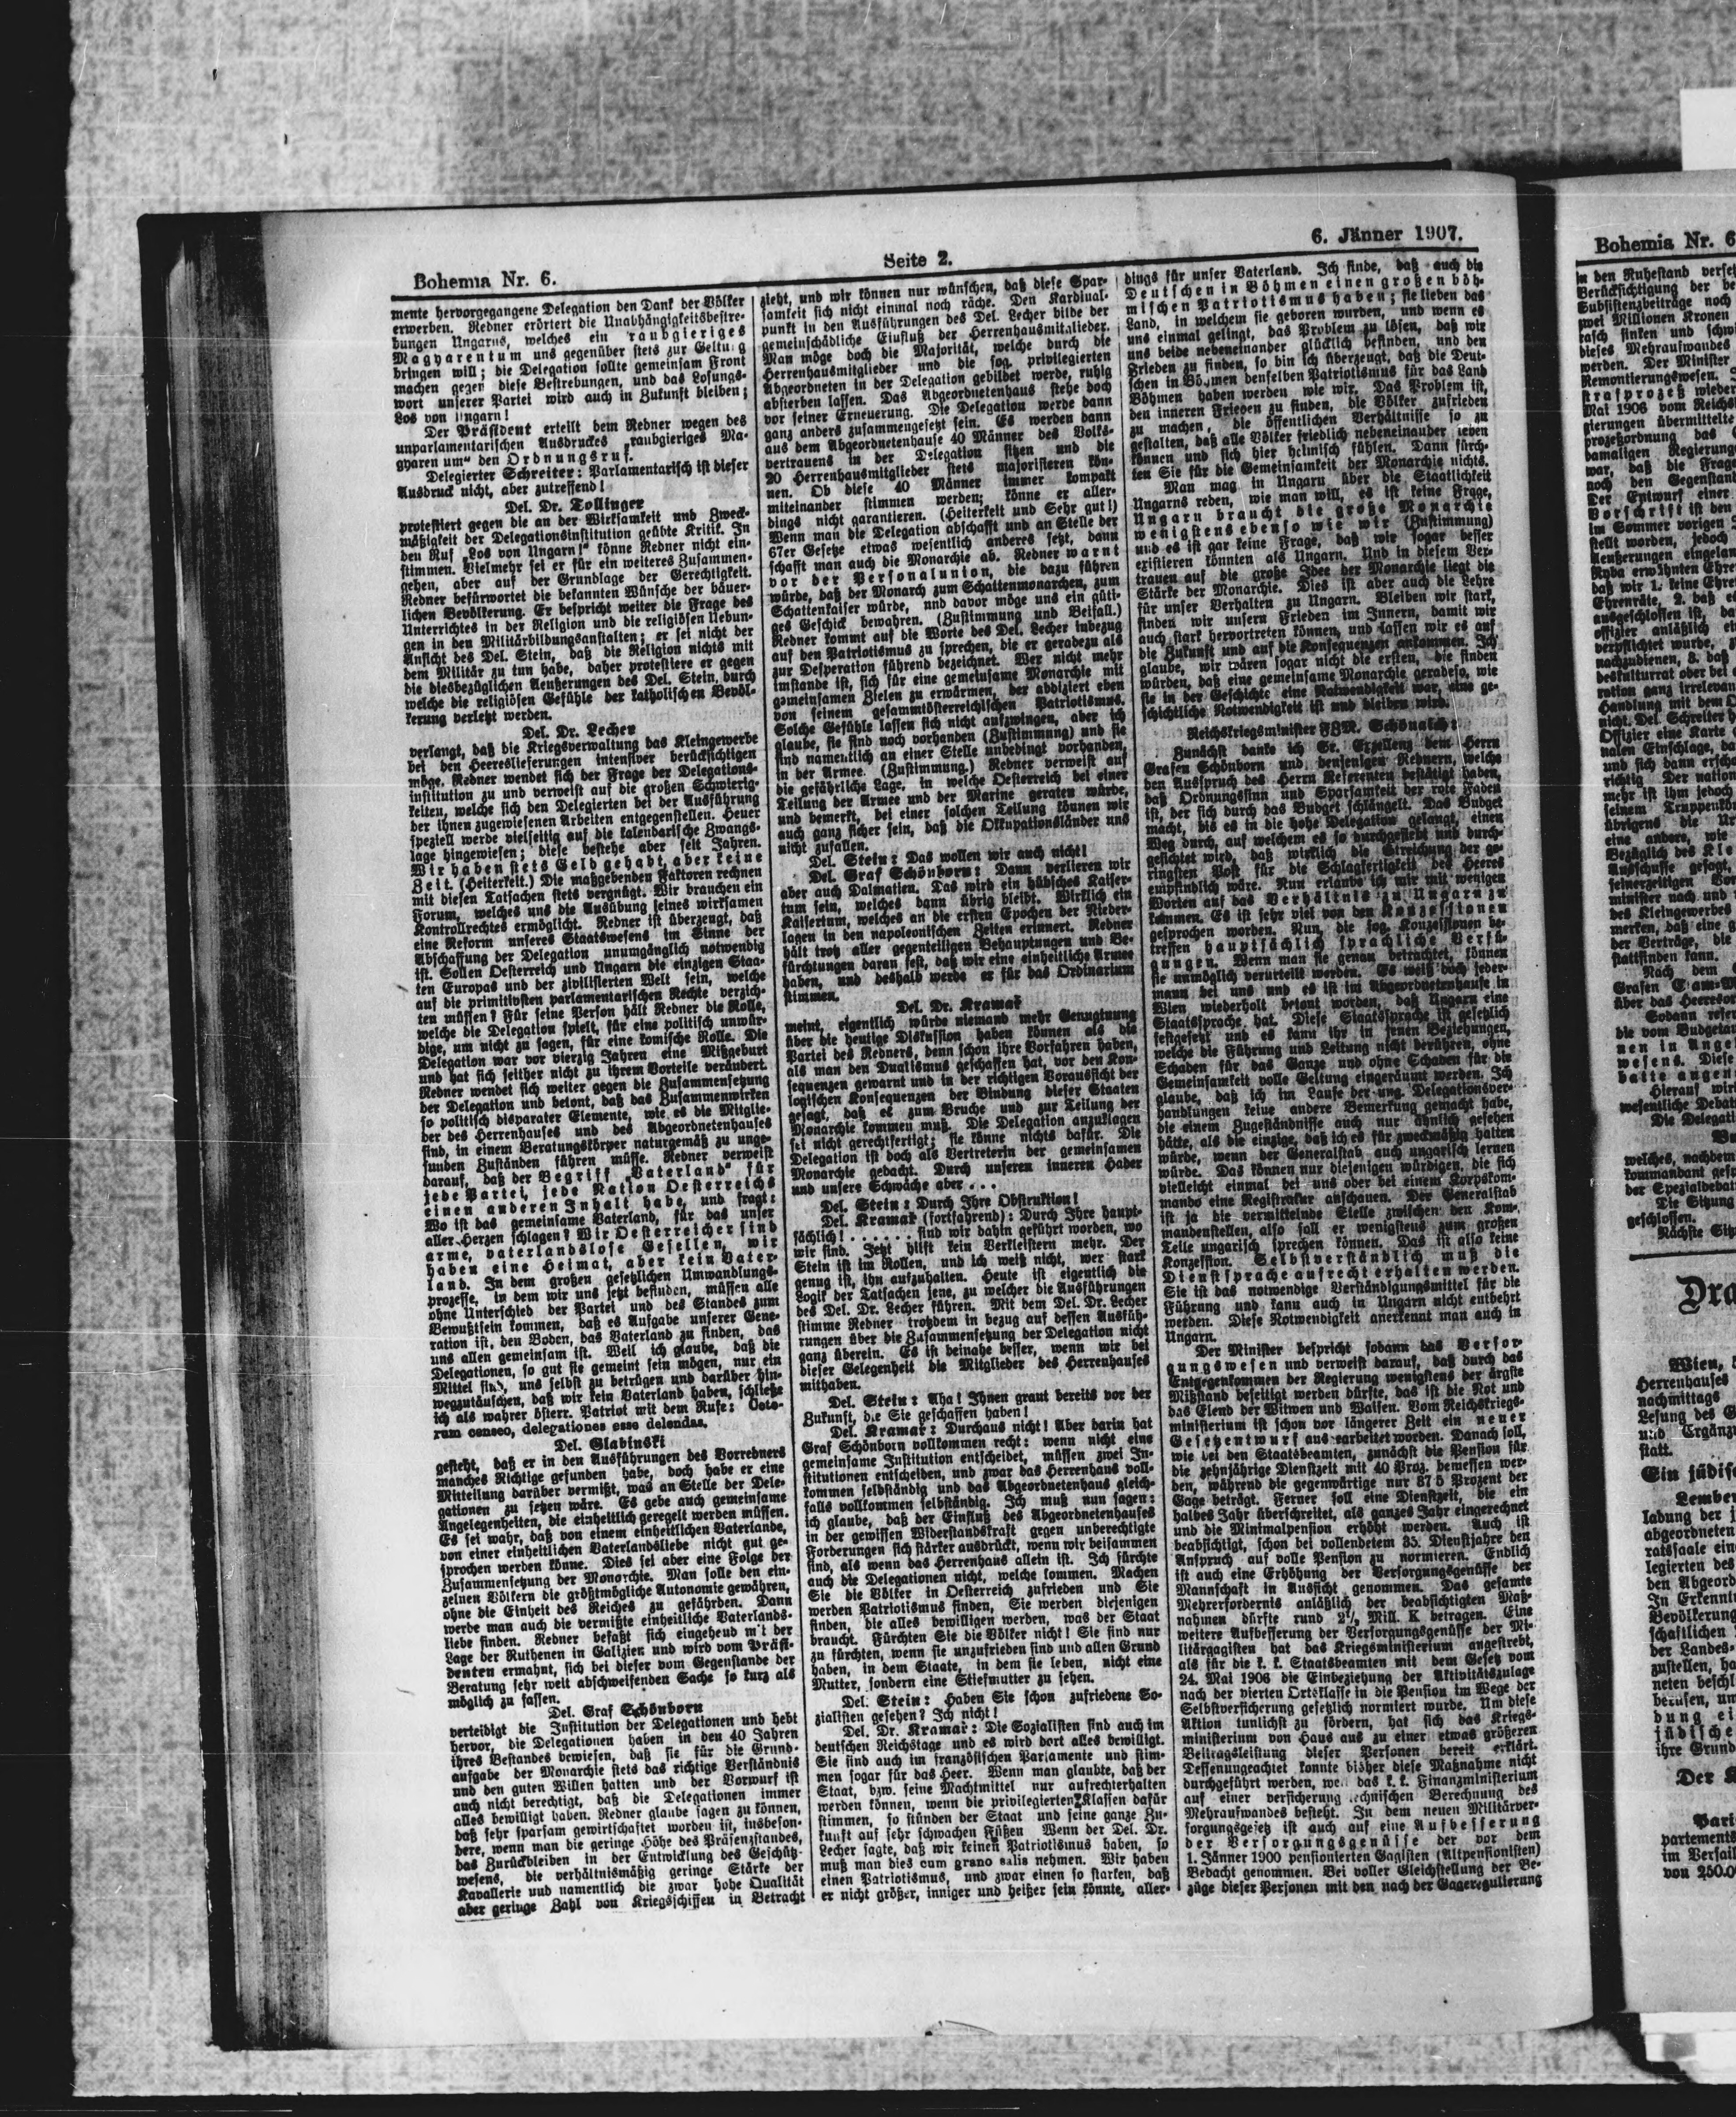 Bohemia Nr. 6.
Seite 2.
6. Jänner 1907.
mente hervorgegangene Delegation den Dank der Völker
erwerben. Redner erörtert die Unabhängigkeitsbestre-
bungen Ungarns, welches ein raubgieriges
Magyarentum uns gegenüber stets zur Geltung
bringen will; die Delegation sollte gemeinsam Front
machen gegen diese Bestrebungen, und das Losungs-
wort unserer Partei wird auch in Zukunft bleiben;
Los von Ungarn!
Der Präsident erteilt dem Redner wegen des
unparlamentarischen Ausdruckes „raubgieriges Ma-
gyaren um“ den Ordnungsruf.
Delegierter Schreiter: Parlamentarisch ist dieser
Ausdruck nicht, aber zutreffend!
Del. Dr. Tollinger
protestiert gegen die an der Wirksamkeit und Zweck-
mäßigkeit der Delegationsinstitution geübte Kritik. In
den Ruf „Los von Ungarn!“ könne Redner nicht ein-
stimmen. Vielmehr sei er für ein weiteres Zusammen-
gehen, aber auf der Grundlage der Gerechtigkeit.
Redner befürwortet die bekannten Wünsche der bäuer-
lichen Bevölkerung. Er bespricht weiter die Frage des
Unterrichtes in der Religion und die religiösen Uebun-
gen in den Militärbildungsanstalten; er sei nicht der
Ansicht des Del. Stein, daß die Religion nichts mit
dem Militär zu tun habe, daher protestiere er gegen
die diesbezüglichen Aeußerungen des Del. Stein, durch
welche die religiösen Gefühle der katholischen Bevöl-
kerung verletzt werden.
Del. Dr. Lecher
verlangt, daß die Kriegsverwaltung das Kleingewerbe
bei den Heereslieferungen intensiver berücksichtigen
möge. Redner wendet sich der Frage der Delegations-
institution zu und verweist auf die großen Schwierig-
keiten, welche sich den Delegierten bei der Ausführung
der ihnen zugewiesenen Arbeiten entgegenstellen. Heuer
speziell werde vielseitig auf die kalendarische Zwangs-
lage hingewiesen; diese bestehe aber seit Jahren.
Wir haben stets Geld gehabt, aber keine
Zeit. (Heiterkeit.) Die maßgebenden Faktoren rechnen
mit diesen Tatsachen stets vergnügt. Wir brauchen ein
Forum, welches uns die Ausübung seines wirksamen
Kontrollrechtes ermöglicht. Redner ist überzeugt, daß
eine Reform unseres Staatswesens im Sinne der
Abschaffung der Delegation unumgänglich notwendig
ist. Sollen Oesterreich und Ungarn die einzigen Staa-
ten Europas und der zivilisierten Welt sein, welche
auf die primitivsten parlamentarischen Rechte verzich-
ten müssen? Für seine Person hält Redner die Rolle,
welche die Delegation spielt, für eine politisch unwür-
dige, um nicht zu sagen, für eine komische Rolle. Die
Delegation war vor vierzig Jahren eine Mißgeburt
und hat sich seither nicht zu ihrem Vorteile verändert.
Redner wendet sich weiter gegen die Zusammensetzung
der Delegation und betont, daß das Zusammenwirken
so politisch disparater Elemente, wie es die Mitglie-
der des Herrenhauses und des Abgeordnetenhauses
sind, in einem Beratungskörper naturgemäß zu unge-
sunden Zuständen führen müsse. Redner verweist
darauf, daß der Begriff „Vaterland“ für
jede Partei, jede Nation Oesterreichs
einen anderen Inhalt habe, und fragt:
Wo ist das gemeinsame Vaterland, für das unser
aller Herzen schlagen? Wir Oesterreicher sind
arme, vaterlandslose Gesellen, wir
haben eine Heimat, aber kein Vater-
land. In dem großen gesetzlichen Umwandlungs-
prozesse, in dem wir uns jetzt befinden, müssen alle
ohne Unterschied der Partei und des Standes zum
Bewußtsein kommen, daß es Aufgabe unserer Gene-
ration ist, den Boden, das Vaterland zu finden, das
uns allen gemeinsam ist. Weil ich glaube, daß die
Delegationen, so gut sie gemeint sein mögen, nur ein
Mittel sind, uns selbst zu betrügen und darüber hin-
wegzutäuschen, daß wir kein Vaterland haben, schließe
ich als wahrer österr. Patriot mit dem Rufe: Ceto-
rum censeo, delegationes esse delendas.
Del. Glabinski
gesteht, daß er in den Ausführungen des Vorredners
manches Richtige gefunden habe, doch habe er eine
Mitteilung darüber vermißt, was an Stelle der Dele-
gationen zu setzen wäre. Es gebe auch gemeinsame
Angelegenheiten, die einheitlich geregelt werden müssen.
Es sei wahr, daß von einem einheitlichen Vaterlande,
von einer einheitlichen Vaterlandsliebe nicht gut ge-
sprochen werden könne. Dies sei aber eine Folge der
Zusammensetzung der Monarchie. Man solle den ein-
zelnen Völkern die größtmögliche Autonomie gewähren,
ohne die Einheit des Reiches zu gefährden. Dann
werde man auch die vermißte einheitliche Vaterlands-
liebe finden. Redner befaßt sich eingehend mit der
Lage der Ruthenen in Galizien und wird vom Präsi-
denten ermahnt, sich bei dieser vom Gegenstande der
Beratung sehr weit abschweifenden Sache so kurz als
möglich zu fassen.
Del. Graf Schönborn
verteidigt die Institution der Delegationen und hebt
hervor, die Delegationen haben in den 40 Jahren
ihres Bestandes bewiesen, daß sie für die Grund-
aufgabe der Monarchie stets das richtige Verständnis
und den guten Willen hatten und der Vorwurf ist
auch nicht berechtigt, daß die Delegationen immer
alles bewilligt haben. Redner glaube sagen zu können,
daß sehr sparsam gewirtschaftet worden ist, insbeson-
dere, wenn man die geringe Höhe des Präsenzstandes,
das Zurückbleiben in der Entwicklung des Geschütz-
wesens, die verhältnismäßig geringe Stärke der
Kavallerie und namentlich die zwar hohe Qualität
aber geringe Zahl von Kriegsschiffen in Betracht
zieht, und wir können nur wünschen, daß diese Spar-
samkeit sich nicht einmal noch räche. Den Kardinal-
punkt in den Ausführungen des Del. Lecher bilde der
gemeinschädliche Einfluß der Herrenhausmitglieder.
Man möge doch die Majorität, welche durch die
Herrenhausmitglieder und die sog. privilegierten
Abgeordneten in der Delegation gebildet werde, ruhig
absterben lassen. Das Abgeordnetenhaus stehe doch
vor seiner Erneuerung. Die Delegation werde dann
ganz anders zusammengesetzt sein. Es werden dann
aus dem Abgeordnetenhause 40 Männer des Volks-
vertrauens in der Delegation sitzen und die
20 Herrenhausmitglieder stets majorisieren kön-
nen. Ob diese 40 Männer immer kompakt
miteinander stimmen werden; könne er aller-
dings nicht garantieren. (Heiterkeit und Sehr gut!)
Wenn man die Delegation abschafft und an Stelle der
67er Gesetze etwas wesentlich anderes setzt, dann
schafft man auch die Monarchie ab. Redner warnt
vor der Personalunion, die dazu führen
würde, daß der Monarch zum Schattenmonarchen, zum
Schattenkaiser würde, und davor möge uns ein güti-
ges Geschick bewahren. (Zustimmung und Beifall.)
Redner kommt auf die Worte des Del. Lecher inbezug
auf den Patriotismus zu sprechen, die er geradezu als
zur Desperation führend bezeichnet. Wer nicht mehr
imstande ist, sich für eine gemeinsame Monarchie mit
gemeinsamen Zielen zu erwärmen, der abdiziert eben
von seinem gesammtösterreichischen Patriotismus.
Solche Gefühle lassen sich nicht aufzwingen, aber ich
glaube, sie sind noch vorhanden (Zustimmung) und sie
sind namentlich an einer Stelle unbedingt vorhanden,
in der Armee. (Zustimmung.) Redner verweist auf
die gefährliche Lage, in welche Oesterreich bei einer
Teilung der Armee und der Marine geraten würde,
und bemerkt, bei einer solchen Teilung können wir
auch ganz sicher sein, daß die Okkupationsländer uns
nicht zufallen.
Del. Stein: Das wollen wir auch nicht!
Del. Graf Schönborn: Dann verlieren wir
aber auch Dalmatien. Das wird ein hübsches Kaiser-
tum sein, welches dann übrig bleibt. Wirklich ein
Kaisertum, welches an die ersten Epochen der Nieder-
lagen in den napoleonischen Zeiten erinnert. Redner
hält trotz aller gegenteiligen Behauptungen und Be-
fürchtungen daran fest, daß wir eine einheitliche Armee
haben, und deshalb werde er für das Ordinarium
stimmen.
Del. Dr. Kramař
meint, eigentlich würde niemand mehr Genugtuung
über die heutige Diskussion haben können als die
Partei des Redners, denn schon ihre Vorfahren haben,
als man den Dualismus geschaffen hat, vor den Kon-
sequenzen gewarnt und in der richtigen Voraussicht der
logischen Konsequenzen der Bindung dieser Staaten
gesagt, daß es zum Bruche und zur Teilung der
Monarchie kommen muß. Die Delegation anzuklagen
sei nicht gerechtfertigt; sie könne nichts dafür. Die
Delegation ist doch als Vertreterin der gemeinsamen
Monarchie gedacht. Durch unseren inneren Hader
und unsere Schwäche aber . . .
Del. Stein: Durch Ihre Obstruktion!
Del. Kramař (fortfahrend): Durch Ihre haupt-
sächlich! . . . . . . sind wir dahin geführt worden, wo
wir sind. Jetzt hilft kein Verkleistern mehr. Der
Stein ist im Rollen, und ich weiß nicht, wer stark
genug ist, ihn aufzuhalten. Heute ist eigentlich die
Logik der Tatsachen jene, zu welcher die Ausführungen
des Del. Dr. Lecher führen. Mit dem Del. Dr. Lecher
stimme Redner trotzdem in bezug auf dessen Ausfüh-
rungen über die Zusammensetzung der Delegation nicht
ganz überein. Es ist beinahe besser, wenn wir bei
dieser Gelegenheit die Mitglieder des Herrenhauses
mithaben.
Del. Stein: Aha! Ihnen graut bereits vor der
Zukunft, die Sie geschaffen haben!
Del. Kramař: Durchaus nicht! Aber darin hat
Graf Schönborn vollkommen recht: wenn nicht eine
gemeinsame Institution entscheidet, müssen zwei In-
stitutionen entscheiden, und zwar das Herrenhaus voll-
kommen selbständig und das Abgeordnetenhaus gleich-
falls vollkommen selbständig. Ich muß nun sagen:
ich glaube, daß der Einfluß des Abgeordnetenhauses
in der gewissen Widerstandskraft gegen unberechtigte
Forderungen sich stärker ausdrückt, wenn wir beisammen
sind, als wenn das Herrenhaus allein ist. Ich fürchte
auch die Delegationen nicht, welche kommen. Machen
Sie die Völker in Oesterreich zufrieden und Sie
werden Patriotismus finden, Sie werden diejenigen
finden, die alles bewilligen werden, was der Staat
braucht. Fürchten Sie die Völker nicht! Sie sind nur
zu fürchten, wenn sie unzufrieden sind und allen Grund
haben, in dem Staate, in dem sie leben, nicht eine
Mutter, sondern eine Stiefmutter zu sehen.
Del. Stein: Haben Sie schon zufriedene So-
zialisten gesehen? Ich nicht!
Del. Dr. Kramař: Die Sozialisten sind auch im
deutschen Reichstage und es wird dort alles bewilligt.
Sie sind auch im französischen Parlamente und stim-
men sogar für das Heer. Wenn man glaubte, daß der
Staat, bzw. seine Machtmittel nur aufrechterhalten
werden können, wenn die privilegierten Klassen dafür
stimmen, so stünden der Staat und seine ganze Zu-
kunft auf sehr schwachen Füßen Wenn der Del. Dr.
Lecher sagte, daß wir keinen Patriotismus haben, so
muß man dies cum grano salis nehmen. Wir haben
einen Patriotismus, und zwar einen so starken, daß
er nicht größer, inniger und heißer sein könnte, aller-
dings für unser Vaterland. Ich finde, daß auch die
Deutschen in Böhmen einen großen böh-
mischen Patriotismus haben; sie lieben das
Land, in welchem sie geboren wurden, und wenn es
uns einmal gelingt, das Problem zu lösen, daß wir
uns beide nebeneinander glücklich befinden, und den
Frieden zu finden, so bin ich überzeugt, daß die Deut-
schen in Böhmen denselben Patriotismus für das Land
Böhmen haben werden wie wir. Das Problem ist,
den inneren Frieden zu finden, die Völker zufrieden
zu machen, die öffentlichen Verhältnisse so zu
gestalten, daß alle Völker friedlich nebeneinander leben
können und sich hier heimisch fühlen. Dann fürch-
ten Sie für die Gemeinsamkeit der Monarchie nichts.
Man mag in Ungarn über die Staatlichkeit
Ungarns reden, wie man will, es ist keine Frage,
Ungarn braucht die große Monarchie
wenigstens ebenso wie wir (Zustimmung)
und es ist gar keine Frage, daß wir sogar besser
existieren könnten als Ungarn. Und in diesem Ver-
trauen auf die große Idee der Monarchie liegt die
Stärke der Monarchie. Dies ist aber auch die Lehre
für unser Verhalten zu Ungarn. Bleiben wir stark,
finden wir unsern Frieden im Innern, damit wir
auch stark hervortreten können, und lassen wir es auf
die Zukunft und auf die Konsequenzen ankommen. Ich
glaube, wir wären sogar nicht die ersten, die finden
würden, daß eine gemeinsame Monarchie geradeso, wie
sie in der Geschichte eine Notwendigkeit war, eine ge-
schichtliche Notwendigkeit ist und bleiben wird.
Reichskriegsminister FZM. Schönaich:
Zunächst danke ich Sr. Exzellenz dem Herrn
Grafen Schönborn und denjenigen Rednern, welche
den Ausspruch des Herrn Referenten bestätigt haben,
daß Ordnungssinn und Sparsamkeit der rote Faden
ist, der sich durch das Budget schlängelt. Das Budget
macht, bis es in die hohe Delegation gelangt, einen
Weg durch, auf welchem es so durchgesiebt und durch-
gesichtet wird, daß wirklich die Streichung der ge-
ringsten Post für die Schlagfertigkeit des Heeres
empfindlich wäre. Nun erlaube ich mir mit wenigen
Worten auf das Verhältnis zu Ungarn zu
kommen. Es ist sehr viel von den Konzessionen
gesprochen worden. Nun, die sog. Konzessionen be-
treffen hauptsächlich sprachliche Verfü-
gungen. Wenn man sie genau betrachtet, können
sie unmöglich verurteilt werden. Es weiß doch jeder-
mann bei uns und es ist im Abgeordnetenhause in
Wien wiederholt betont worden, daß Ungarn eine
Staatssprache hat. Diese Staatssprache ist gesetzlich
festgesetzt und es kann ihr in jenen Beziehungen,
welche die Führung und Leitung nicht berühren, ohne
Schaden für das Ganze und ohne Schaden für die
Gemeinsamkeit volle Geltung eingeräumt werden. Ich
glaube, daß ich im Laufe der ung. Delegationsver-
handlungen keine andere Bemerkung gemacht habe,
die einem Zugeständnisse auch nur ähnlich gesehen
hätte, als die einzige, daß ich es für zweckmäßig halten
würde, wenn der Generalstab auch ungarisch lernen
würde. Das können nur diejenigen würdigen, die sich
vielleicht einmal bei uns oder bei einem Korpskom-
mando eine Registratur anschauen. Der Generalstab
ist ja die vermittelnde Stelle zwischen den Kom-
mandenstellen, also soll er wenigstens zum großen
Teile ungarisch sprechen können. Das ist also keine
Konzession. Selbstverständlich muß die
Dienstsprache aufrecht erhalten werden.
Sie ist das notwendige Verständigungsmittel für die
Führung und kann auch in Ungarn nicht entbehrt
werden. Diese Notwendigkeit anerkennt man auch in
Ungarn.
Der Minister bespricht sodann das Versor-
gungswesen und verweist darauf, daß durch das
Entgegenkommen der Regierung wenigstens der ärgste
Mißstand beseitigt werden dürfte, das ist die Not und
das Elend der Witwen und Waisen. Vom Reichskriegs-
ministerium ist schon vor längerer Zeit ein neuer
Gesetzentwurf ausgearbeitet worden. Danach soll,
wie bei den Staatsbeamten, zunächst die Pension für
die zehnjährige Dienstzeit mit 40 Proz. bemessen wer-
den, während die gegenwärtige nur 37 5 Prozent der
Gage beträgt. Ferner soll eine Dienstzeit, die ein
halbes Jahr überschreitet, als ganzes Jahr eingerechnet
und die Minimalpension erhöht werden. Auch ist
beabsichtigt, schon bei vollendetem 35. Dienstjahre den
Anspruch auf volle Pension zu normieren. Endlich
ist auch eine Erhöhung der Versorgungsgenüsse der
Mannschaft in Aussicht genommen. Das gesamte
Mehrerfordernis anläßlich der beabsichtigten Maß-
nahmen dürfte rund 2½ Mill. K betragen. Eine
weitere Aufbesserung der Versorgungsgenüsse der Mi-
litärgagisten hat das Kriegsministerium angestrebt,
als für die k. k. Staatsbeamten mit dem Gesetz vom
24. Mai 1906 die Einbeziehung der Aktivitätszulage
nach der vierten Ortsklasse in die Pension im Wege der
Selbstversicherung gesetzlich normiert wurde. Um diese
Aktion tunlichst zu fördern, hat sich das Kriegs-
ministerium von Haus aus zu einer etwas größeren
Beitragsleistung dieser Personen bereit erklärt.
Dessenungeachtet konnte bisher diese Maßnahme nicht
durchgeführt werden, we das k. k. Finanzministerium
auf einer versicherung echnischen Berechnung des
Mehraufwandes besteht. In dem neuen Militärver-
sorgungsgesetz ist auch auf eine Aufbesserung
der Versorgungsgenüsse der vor dem
1. Jänner 1900 pensionierten Gagisten (Altpensionisten)
Bedacht genommen. Bei voller Gleichstellung der Be-
züge dieser Personen mit den nach der Gageregulierung
Bohemia Nr. 6
in den Ruhestand verse
Berücksichtigung der be
Subsistenzbeiträge noch
zwei Millionen Kronen
rasch sinken und schw
dieses Mehraufwandes
werden. Der Minister
Remontierungswesen.
strafprozeß wieder
Mai 1906 vom Reichs
gierungen übermittelte
prozeßordnung das
damaligen Regierung
war, daß die Frage
noch den Gegenstand
Der Entwurf einer
Vorschrift ist den
im Sommer vorigen
stellt worden, jedoch
Aeußerungen eingelan
Ryba erwähnten Ehre
daß wir 1. keine Ehre
Ehrenräte, 2. daß e
ausgeschlossen ist, da
offizier anläßlich ei
verpflichtet wurde,
nachzudienen, 3. daß
deskulturrat oder bei
ration ganz irrelevan
Handlung mit dem O
nicht. Del. Schreiter h
Offizier eine Karte
nalen Einschlage, da
und sich dann erscho
richtig Der nation
mehr ist ihm jedoch
seinem Truppenkör
übrigens die Ur
eine andere, wie
Bezüglich des Kle
Ausschusse gesagt,
seinerzeitigen Vor
minister nach und
des Kleingewerbes
merken, daß eine g
der Verträge, die
stattfinden kann.
Nach dem
Grafen Clam-M
über das Heereser
Sodann refer
die vom Budgetau
nen in Ange
wesens. Diese
batte angen
Hierauf wir
wesentliche Debat
Die Delegati
welches, nachdem
kommandant ges
der Spezialdebat
Die Sitzung
geschlossen.
Nächste Sitz
Dra
Wien,
Herrenhauses
nachmittags
Lesung des G
und Ergänz
statt.
Ein jüdisc
Lember
ladung der j
abgeordneten
ratssaale ein
legierten des
den Abgeord
In Erkennt
Bevölkerung
schaftlichen
der Landes-
zustellen, ha
neten beschl
berufen, un
dung ei
jüdische
ihre Grund
Der K
Pari
partements
im Versail
von 250.0